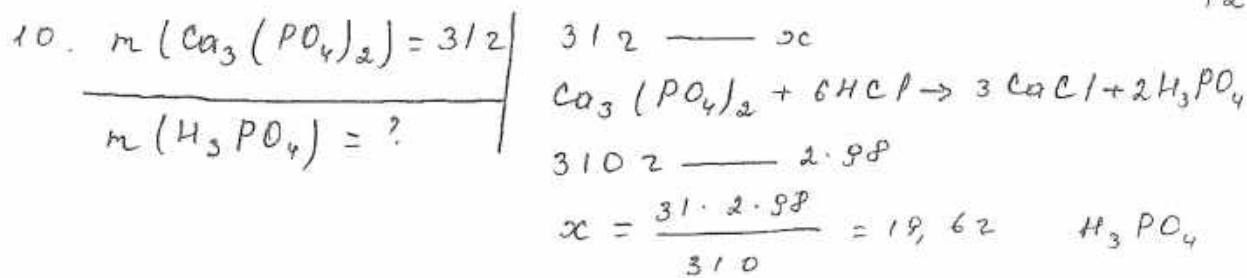 10. m(Ca₃(PO₄)₂) = 31г
m(H₃PO₄) = ?
31г — x
Ca₃(PO₄)₂ + 6HCl → 3CaCl + 2H₃PO₄
310г — 2·98
x = 31·2·98 / 310 = 19,6г H₃PO₄